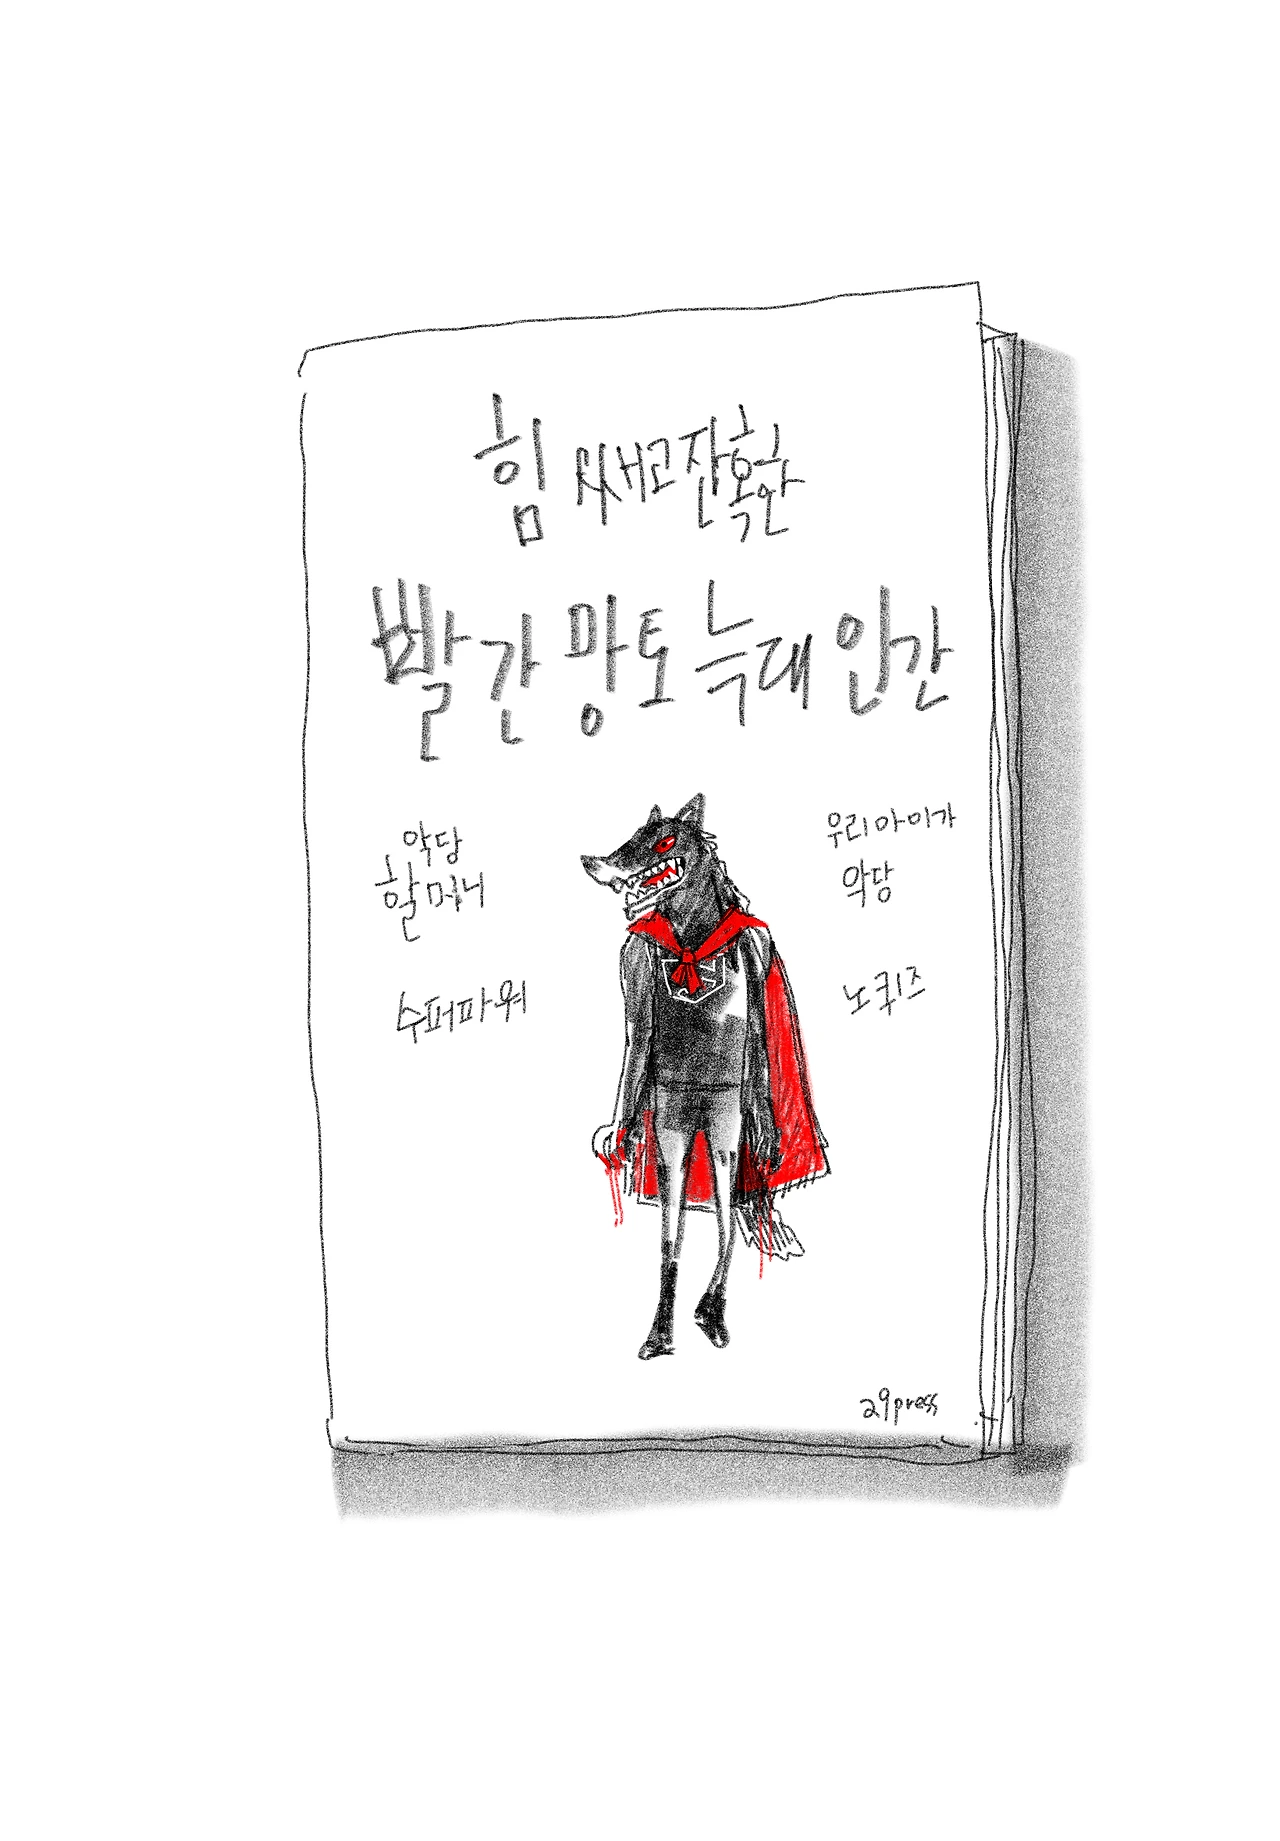 힘 쎄고 잔혹한
빨간 망토 늑대 인간
악당
할머니
수퍼파워
우리 아이가
악당
노키즈
29press